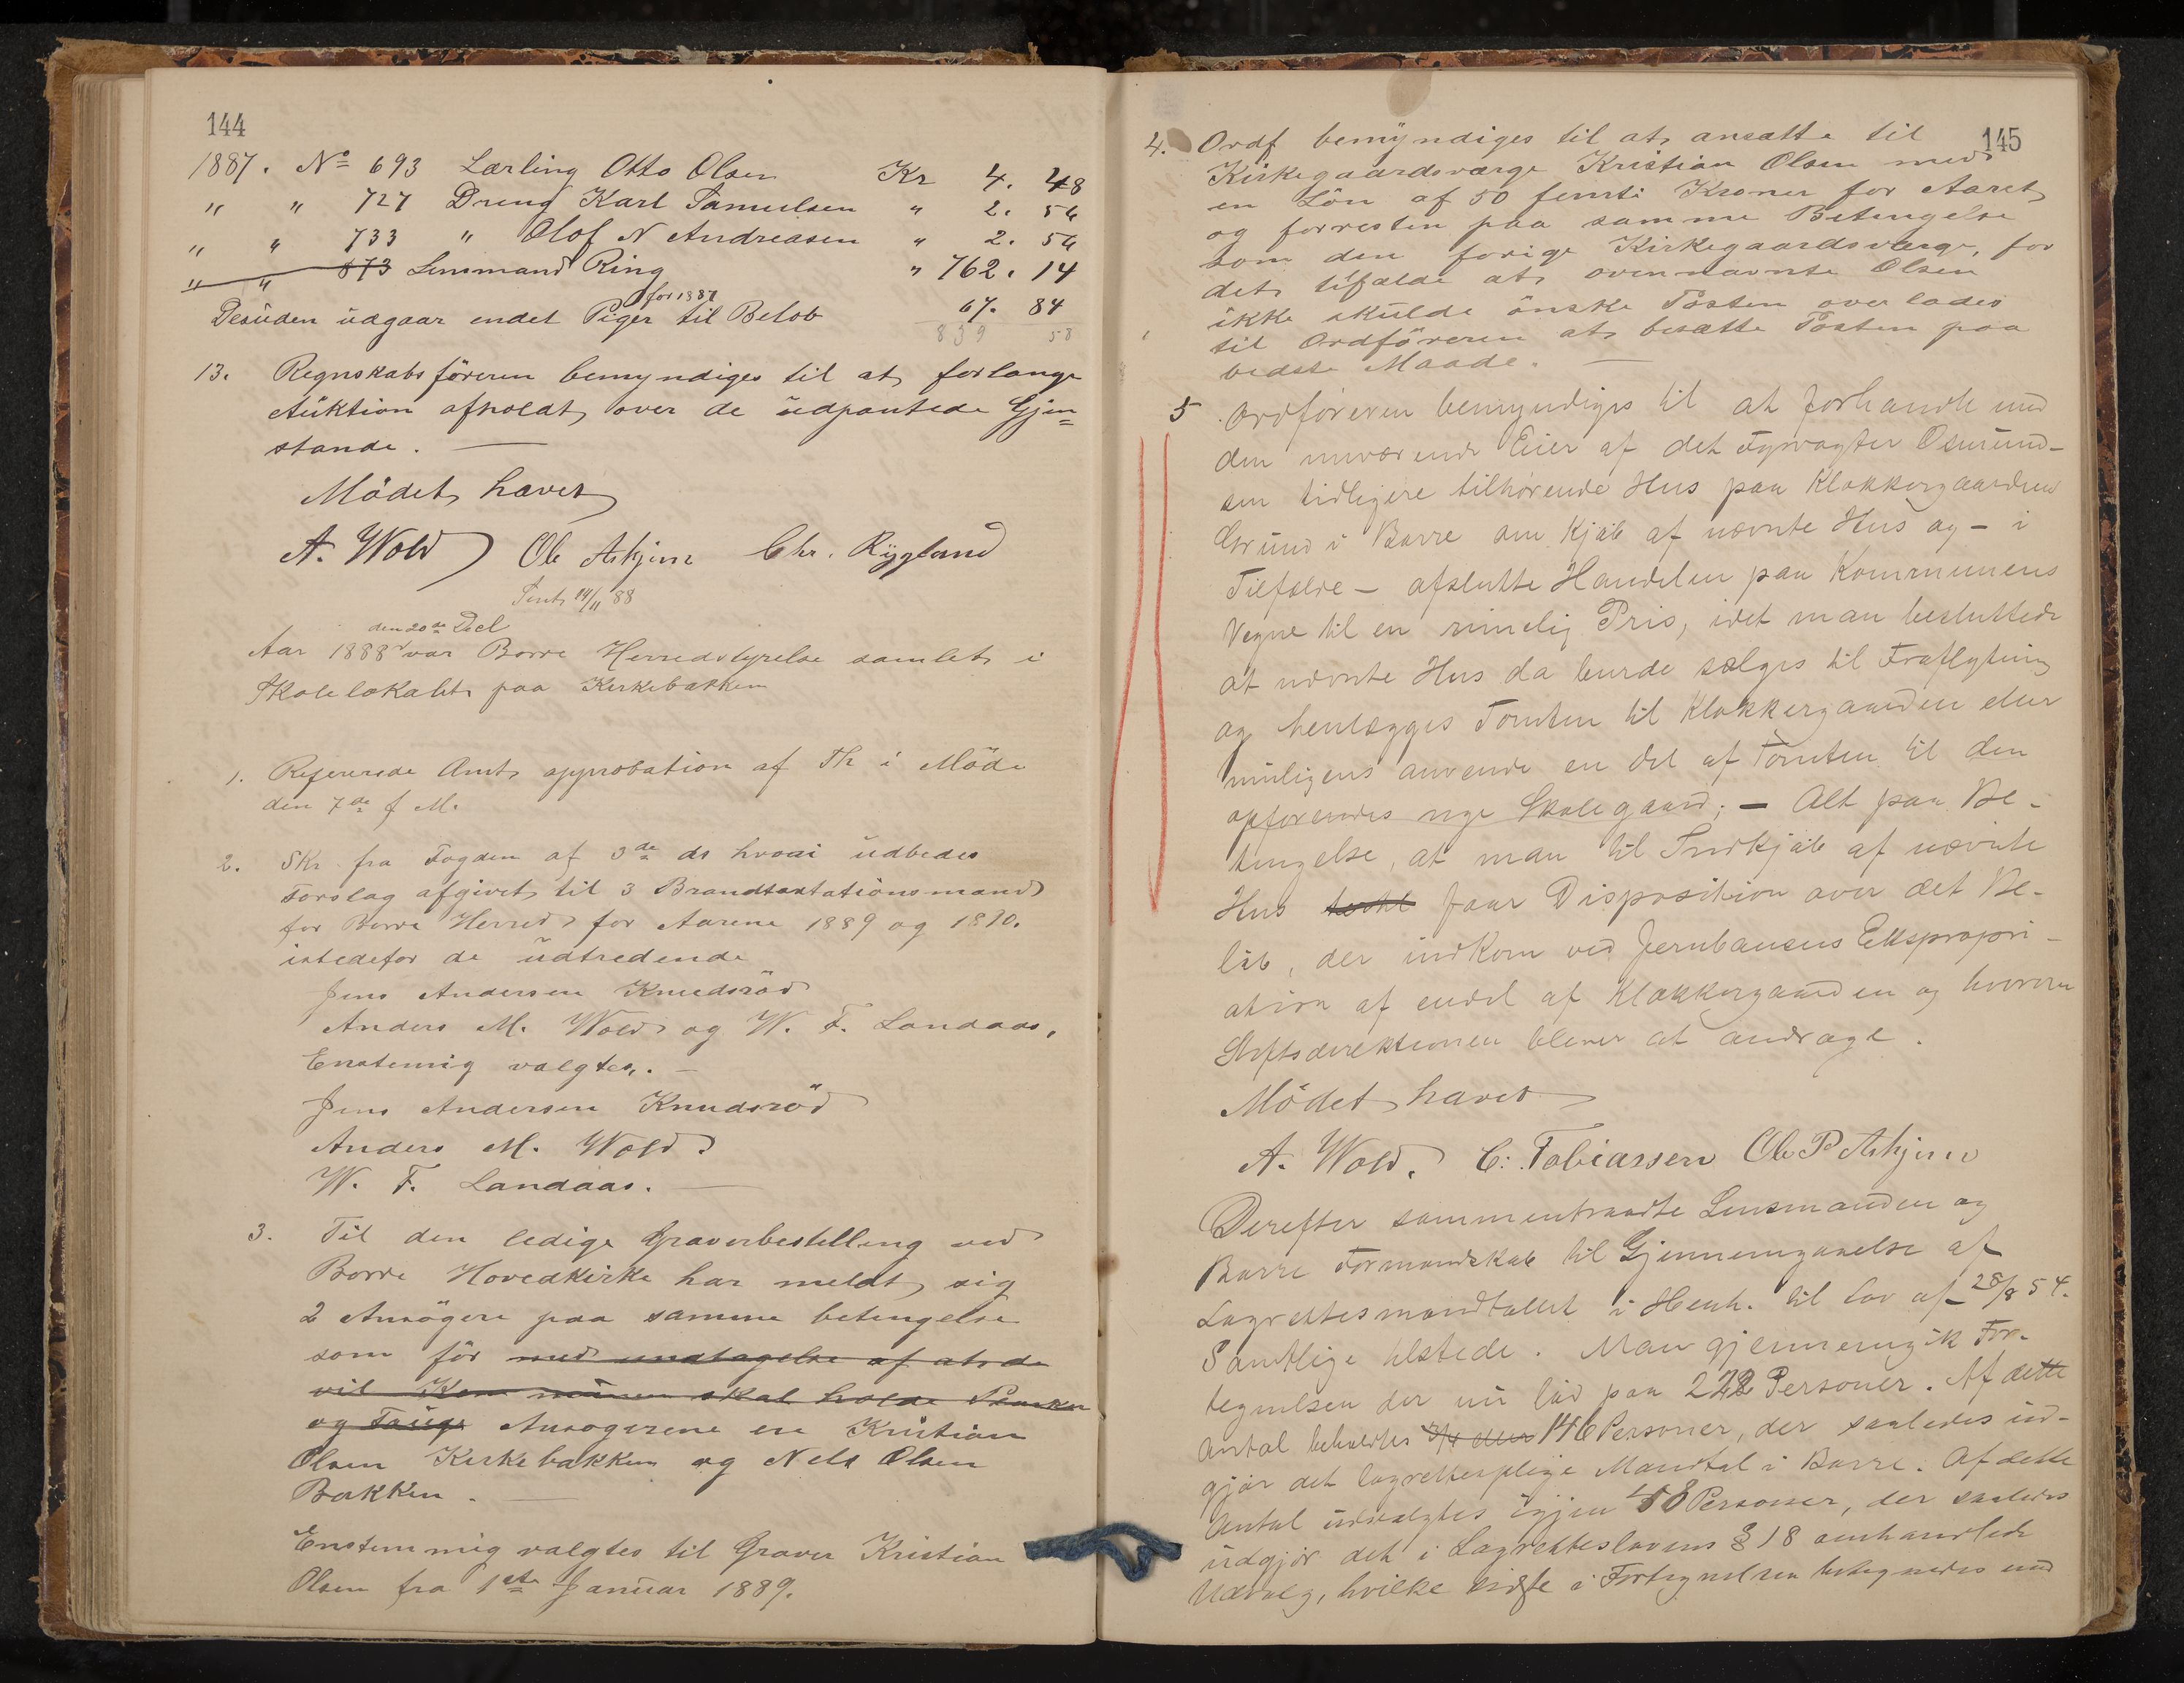 144
1887. No 693 Lærling Otto Olsen Kr 4. 48
" " 727 Dreng Karl Samuelsen " 2. 56
" " 733 " Olof N Andreasen " 2. 56
" " 873 Lensmand Ring " 762. 14
for 1887
Desüden üdgaar endel Piger til Beløb 67. 84
839 58
13. Regnskabsföreren bemyndiges til at forlange
Aüktion afholdt over de üdpantede Gjen=
stande.
Mödet hævet
A. Wold Ole Askjem Chr. Rÿgland
Sent 14/11 88
den 20de Decb
Aar 1888 var Borre Herredstyrelse samlet i
Skolelokalet paa Kirkebakken
1. Refererede Amts approbation af Th i Möde
den 7de f M.
2. Skr fra Fogden af 3de ds hvori üdbedes
Forslag afgivet til 3 Brandtaxtationsmænd
for Borre Herred for Aarene 1889 og 1890.
istedefor de üdtredende
Jens Andersen Knudsröd
Anders M. Wold og W. F. Landaas.
Enstemig valgtes.
Jens Andersen Knudsröd
Anders M. Wold
W. F. Landaas.
3. Til den ledige Graverbestilling ved
Borre Hovedkirke har meldt sig
2 Ansögere paa samme betingelse
som för med undtagelse af at de
vil Kommünen skal holde Planker
og Tauge Ansogerene ere Kristian
Olsen Kirkebakken og Nels Olsen
Bakken.
Enstemmig valgtes til Graver Kristian
Olsen fra 1ste Janüar 1889.
145
4. Ordf bemÿndiges til at ansætte til
Kirkegaardsværge Kristian Olsen med
en Lön af 50 femti Kroner for Aaret
og forresten paa samme Betingelse
som den forige Kirkegaardsværge, for
det tifælde at ovennævnte Olsen
ikke skülde önske Posten overlades
til Ordföreren at besætte Posten paa
bedste Maade.
5. Ordføreren bemyndiges til at forhandle med
den nuværende Eier af det Fyrvogter Osmünd-
sen tidligere tilhørende Hus paa Klokkergaardens
Gründ i Borre om Kjøb af nævnte Hus og – i
Tilfælde – afslutte Handelen paa Kommunens
Vegne til en rimelig Pris, idet man besluttede
at nævnte Hus da burde sælges til Fraflytning
og henlægges Tomten til Klokkergaarden eller
muligens anvende en del af Tomten til den
opførendes nye Skolegaard; – Alt paa Be-
tingelse, at man til Indkjøb af nævnte
Hus faar Disposition over det Be-
løb, der indkom ved Jernbanens Ekspropri-
ation af endel af Klokkergaarden og hvorom
Stiftsdirektionen bliver at andrage.
Mödet hævet
A. Wold. C. Tobiassen Ole P Askjem
Derefter sammentraadte Lensmanden og
Borre Formandskab til Gjennemgaaelse af
Lagrettesmandtallet i Henh. til Lov af 28/8 54.
Samtlige tilstede. Man gjennemgik For-
tegnelsen der nü lød paa 222 Personer. Af dette
Antal beholdtes 146 Personer, der saaledes üd-
gjør det lagrettespligtige Mandtal i Borre. Af dette
Antal üdvalgtes igjen 48 Personer, der saaledes
üdgjör det i Lagrettelovens § 18 omhandlede
Udvalg, hvilke sidste i Fortegnelsen betegnedes med